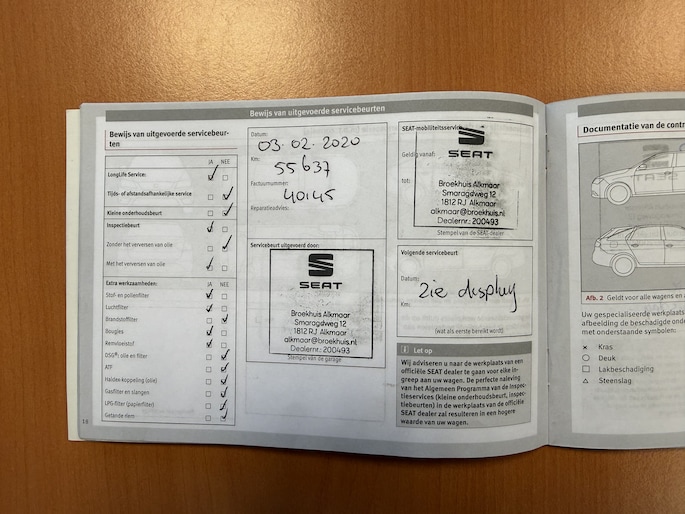 Bewijs van uitgevoerde servicebeurten
Bewijs van uitgevoerde servicebeur-
ten
JA NEE
LongLife Service:
Tijds- of afstandsafhankelijke service
Kleine onderhoudsbeurt
Inspectiebeurt
Zonder het verversen van olie
Met het verversen van olie
Extra werkzaamheden: JA NEE
Stof- en pollenfilter
Luchtfilter
Brandstoffilter
Bougies
Remvloeistof
DSG®: olie en filter
ATF
Haldex-koppeling (olie)
Gasfilter en slangen
LPG-filter (papierfilter)
Getande riem
18
Datum:
03.02.2020
Km:
55637
Factuurnummer:
40145
Reparatieadvies:
Servicebeurt uitgevoerd door:
SEAT
Broekhuis Alkmaar
Smaragdweg 12
1812 RJ Alkmaar
alkmaar@broekhuis.nl
Dealernr.: 200493
Stempel van de garage
SEAT-mobiliteitsservice
Geldig vanaf:
SEAT
tot:
Broekhuis Alkmaar
Smaragdweg 12
1812 RJ Alkmaar
alkmaar@broekhuis.nl
Dealernr.: 200493
Stempel van de SEAT-dealer
Volgende servicebeurt
Datum:
zie display
Km:
(wat als eerste bereikt wordt)
Let op
Wij adviseren u naar de werkplaats van een
officiële SEAT dealer te gaan voor elke in-
greep aan uw wagen. De perfecte naleving
van het Algemeen Programma van de inspec-
tieservices (kleine onderhoudsbeurt, inspec-
tiebeurten) in de werkplaats van de officiële
SEAT dealer zal resulteren in een hogere
waarde van uw wagen.
Documentatie van de contr
Afb. 2 Geldt voor alle wagens en
Uw gespecialiseerde werkplaats
afbeelding de beschadigde onde
met onderstaande symbolen:
Kras
Deuk
Lakbeschadiging
Steenslag